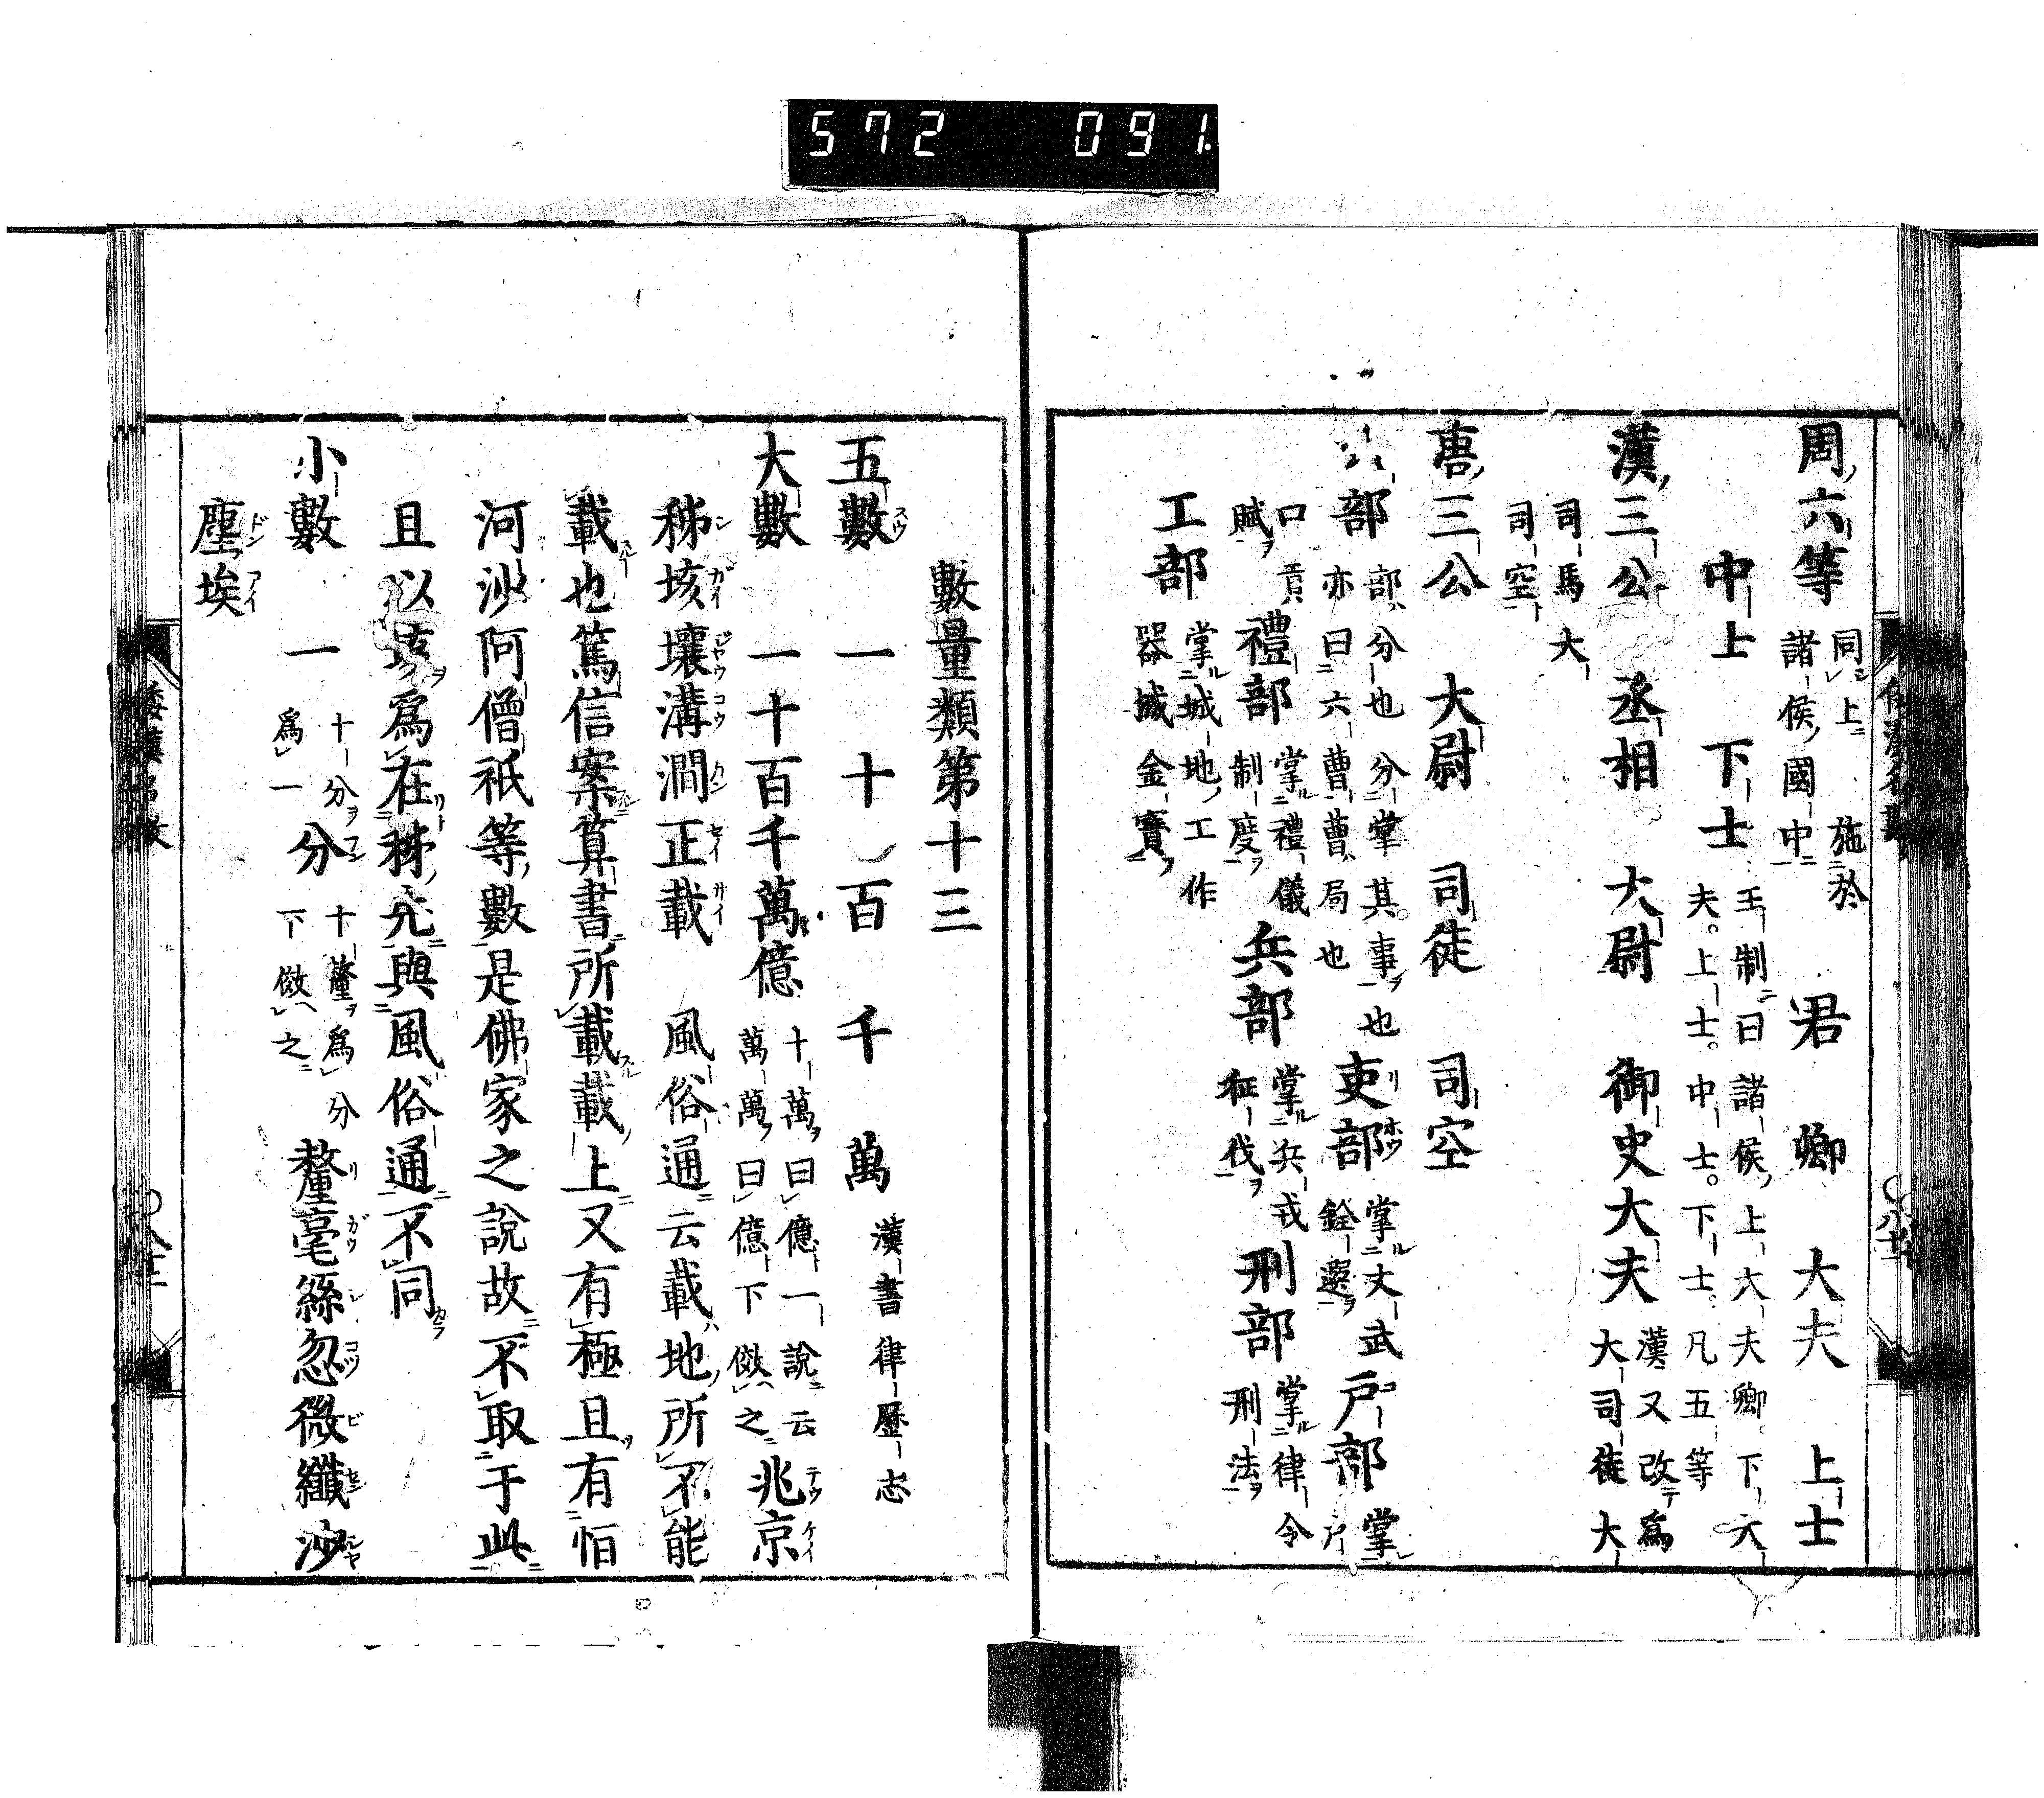 572 091
周六等 同上 施於諸侯國中 君 卿 大夫 上士
中士 下士 王制曰諸侯上大夫卿。下大夫。上士。中士。下士。凡五等
漢三公 丞相 大尉 御史大夫 漢又改為大司徒大
司馬大司空
唐三公 大尉 司徒 司空
六部 部分也分掌其事也亦曰六曹曹局也 吏部 掌文武銓選 戸部 掌戸
口貢賦 禮部 掌禮儀制度 兵部 掌兵戎征伐 刑部 掌律令刑法
工部 掌城地工作器械金寶
數量類第十三
五數 一 十 百 千 萬 漢書律歴志
大數 一十百千萬億 十萬曰億一說云萬萬曰億下倣之 兆京
秭垓壤溝澗正載 風俗通云載地所不能
載也篤信案算書所載載上又有極且有恒
河沙阿僧祇等數是佛家之說故不取于此
且以垓為在秭先與風俗通不同
小數 一 十分為一 分 十釐為分下倣之 釐毫絲忽微纖沙
塵埃